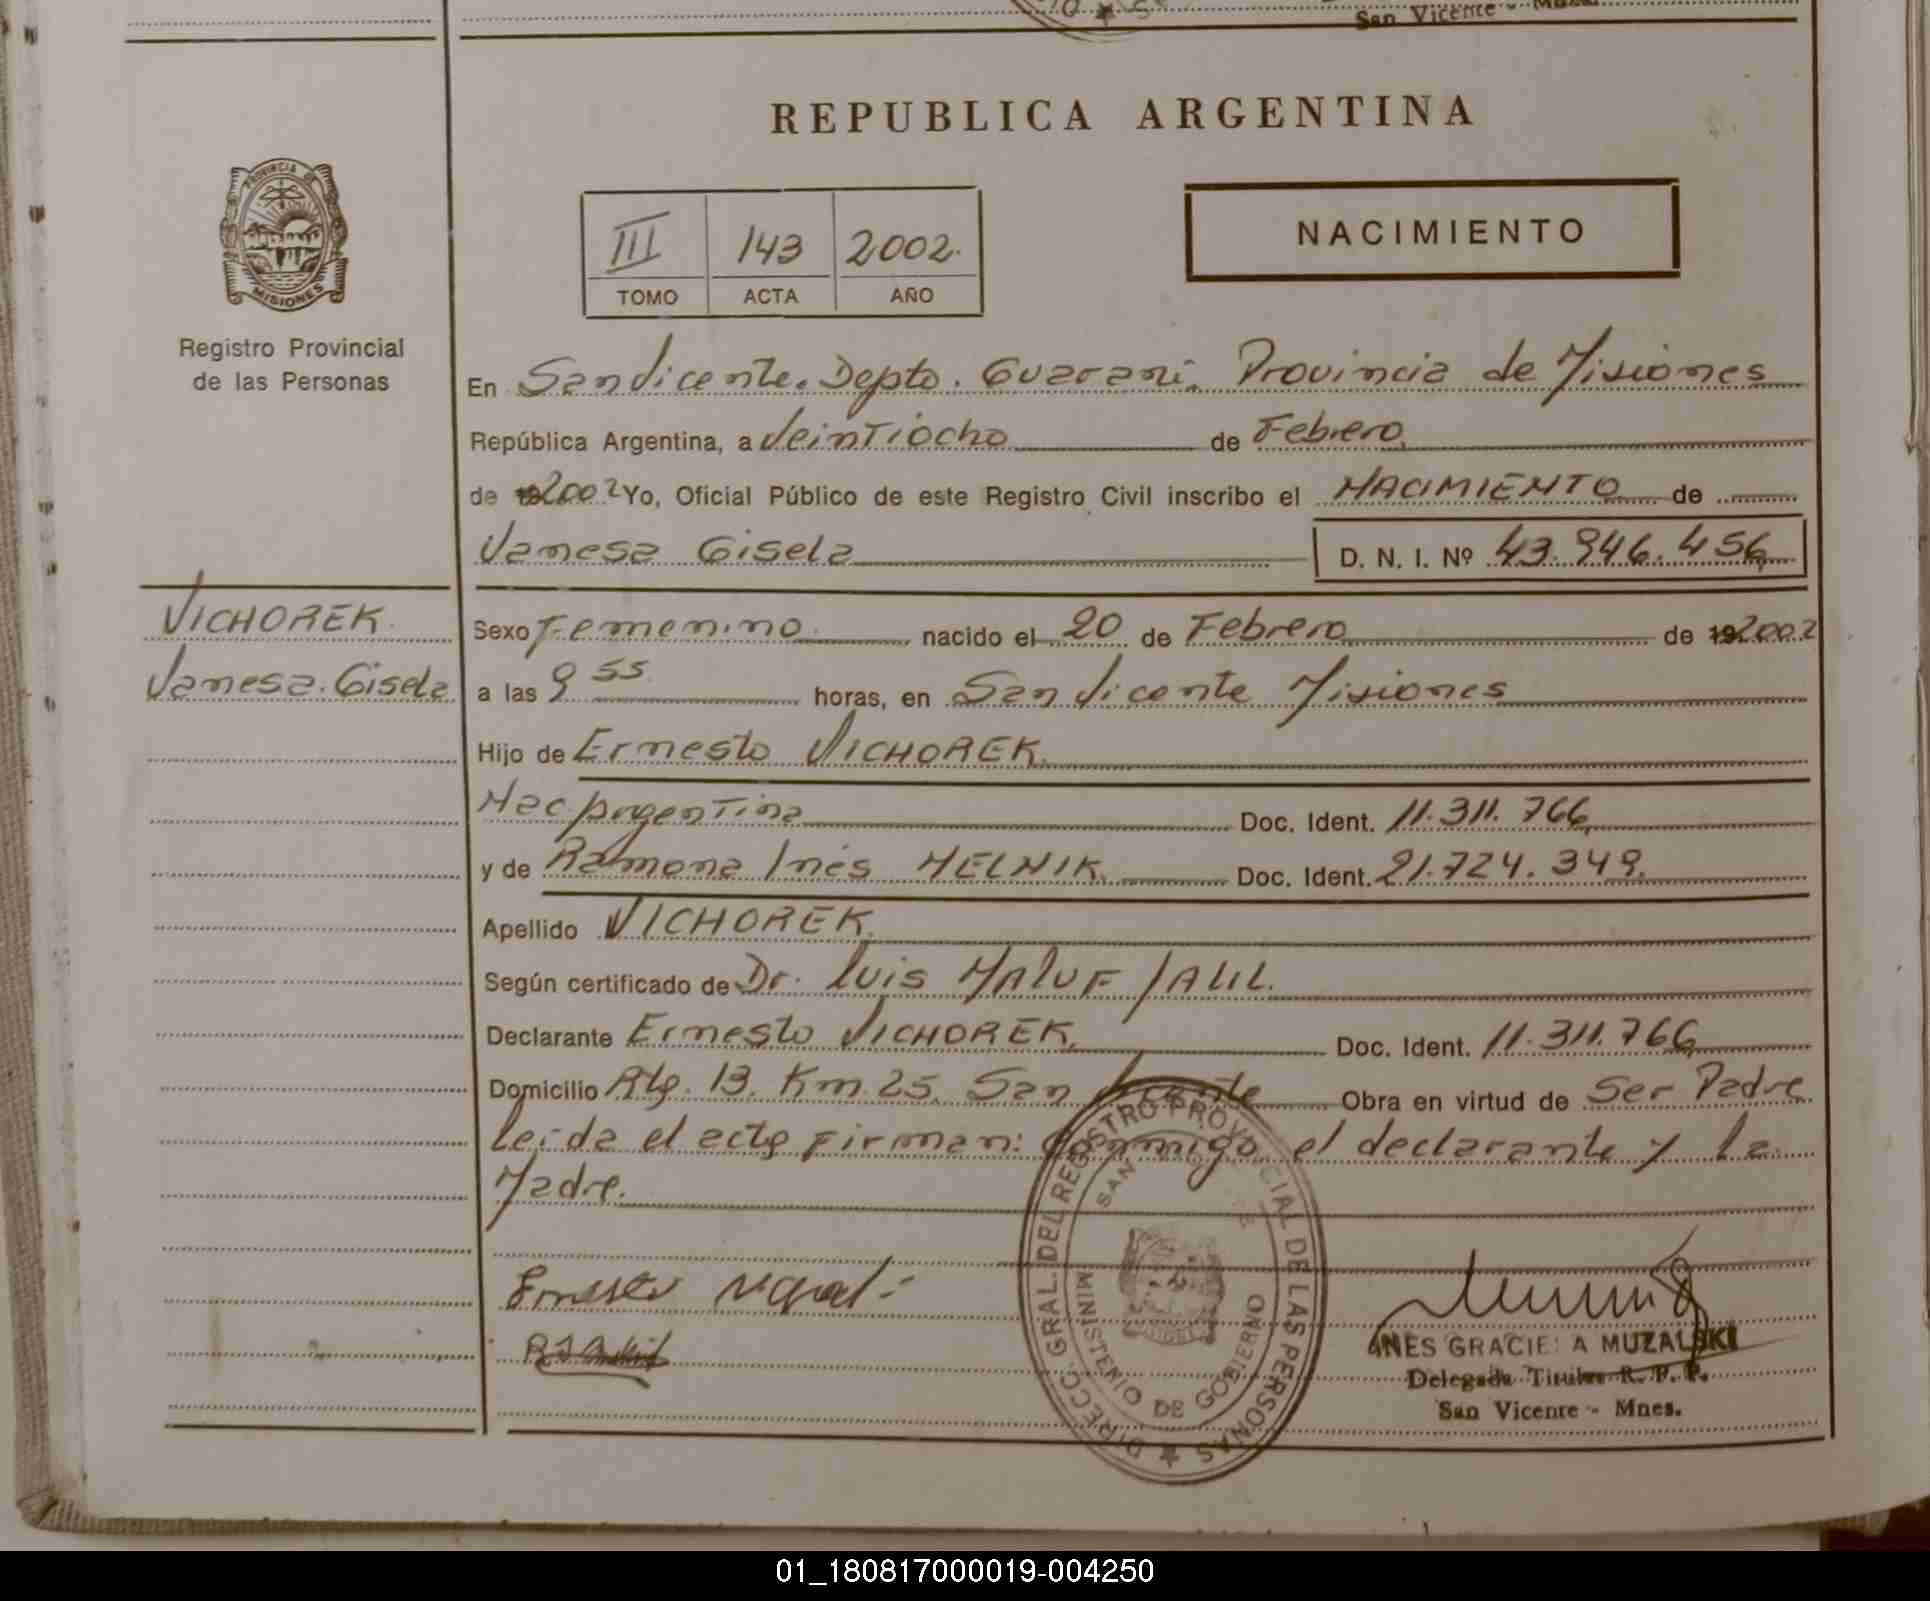 San Vicente -
REPUBLICA ARGENTINA
PROVINCIA DE
MISIONES
Registro Provincial
de las Personas
III 143 2002.
TOMO ACTA AÑO
NACIMIENTO
En San Vicente. Depto. Guarani. Provincia de Misiones
República Argentina, a Veintiocho de Febrero
de 192002 Yo, Oficial Público de este Registro Civil inscribo el NACIMIENTO de
Vanesa Gisela D. N. I. Nº 43.946.456
VICHOREK.
Vanesa. Gisela
Sexo Femenino. nacido el 20 de Febrero de 192002
a las 9 55 horas, en San Vicente Misiones
Hijo de Ernesto VICHOREK.
Nac. Argentina Doc. Ident. 11.311.766
y de Ramona Inés MELNIK. Doc. Ident. 21.724.349.
Apellido VICHOREK.
Según certificado de Dr. Luis MALUF JALIL.
Declarante Ernesto VICHOREK, Doc. Ident. 11.311.766
Domicilio Rta. 13. Km 25. San Vicente Obra en virtud de Ser Padre
leida el acta firman: Conmigo el declarante y la
Madre.
DIRECC. GRAL. DEL REGISTRO PROVINCIAL DE LAS PERSONAS
SAN
MINISTERIO DE GOBIERNO
Ernesto
INES GRACIELA MUZALSKI
Delegada Titular R. P. P.
San Vicente - Mnes.
01_180817000019-004250